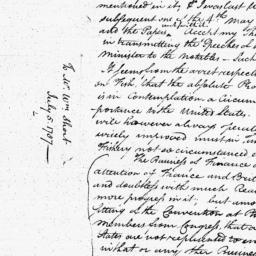 mentioned in it, & I was last
subsequent one of the 4th May
and the Papers Accept my Th
in transmitting the Speeches of
Minister to the Notables. Such
It seems from the arret respecti
on Fish, that the absolute Pro
is in Contemplation a Circum
portance to the United States.
will however always
wisely improved must in
Fishery not so circumstanced
The Business of Finance
attention of France and Brit
and doubtless with much Rea
more progress in it; but
sitting of the Convention at P
members from Congress, that a
States are not represented to en
in that or any other Business
To Mr. Wm Short
July 5. 1787